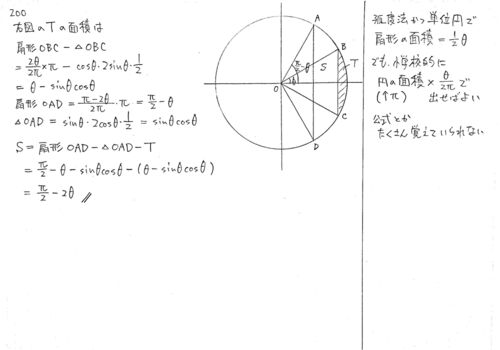 200
右図のTの面積は
扇形OBC − △OBC
= 2θ/2π × π − cosθ・2sinθ・1/2
= θ − sinθcosθ
扇形OAD = (π−2θ)/2π・π = π/2 − θ
△OAD = sinθ・2cosθ・1/2 = sinθcosθ
S = 扇形OAD − △OAD − T
= π/2 − θ − sinθcosθ − (θ − sinθcosθ)
= π/2 − 2θ //
A
B
π/2−θ
S
T
θ
O
C
D
弧度法かつ単位円で
扇形の面積 = 1/2 θ
でも、小学校的に
円の面積 × θ/2π で
(↑π) 出せばよい
公式とか
たくさん覚えていられない